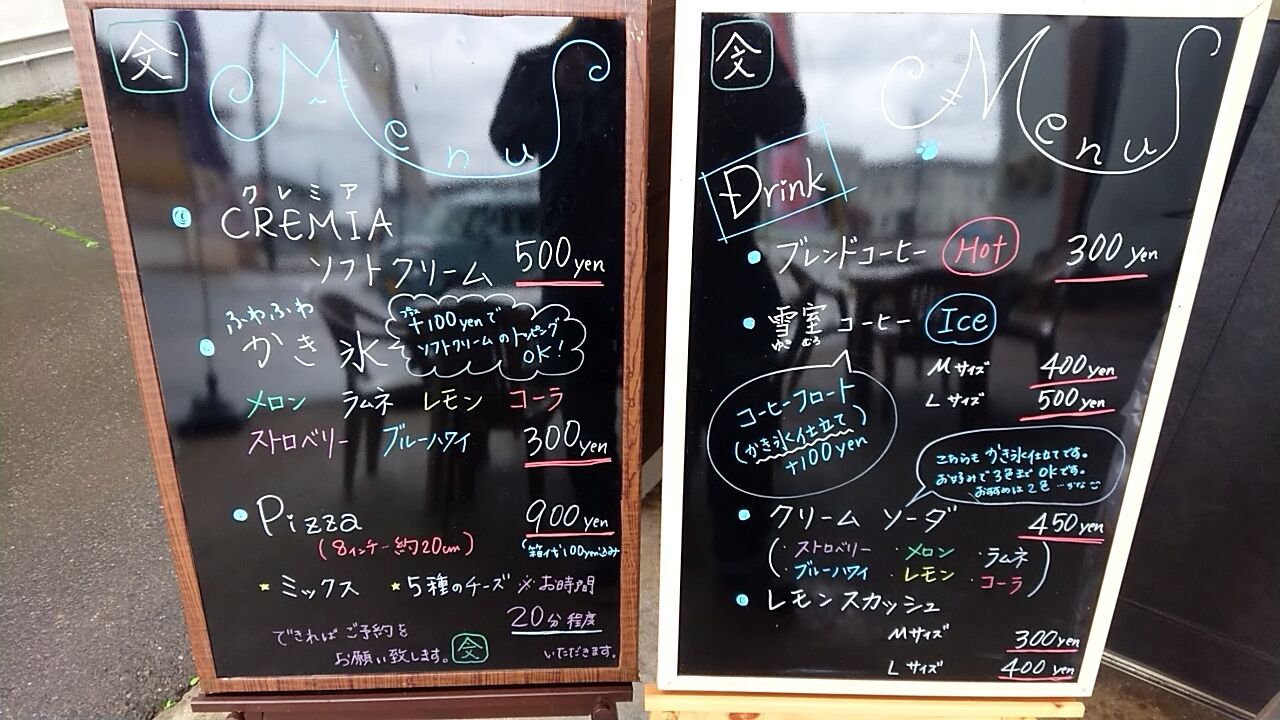 Menu
クレミア
CREMIA
ソフトクリーム 500yen
ふわふわ
かき氷
プラス
+100yenで
ソフトクリームのトッピング
OK!
メロン ラムネ レモン コーラ
ストロベリー ブルーハワイ 300yen
Pizza 900yen
(8インチ…約20cm) (箱代100yen込み)
★ミックス ★5種のチーズ ※お時間
20分程度
いただきます。
できればご予約を
お願い致します。
Menu
Drink
ブレンドコーヒー Hot 300yen
雪室コーヒー Ice
ゆきむろ
Mサイズ 400yen
Lサイズ 500yen
コーヒーフロート
(かき氷仕立て)
+100yen
こちらもかき氷仕立てです。
お好みで3色までOKです。
おすすめは2色…かな
クリームソーダ 450yen
(・ストロベリー ・メロン ・ラムネ
・ブルーハワイ ・レモン ・コーラ)
レモンスカッシュ
Mサイズ 300yen
Lサイズ 400yen